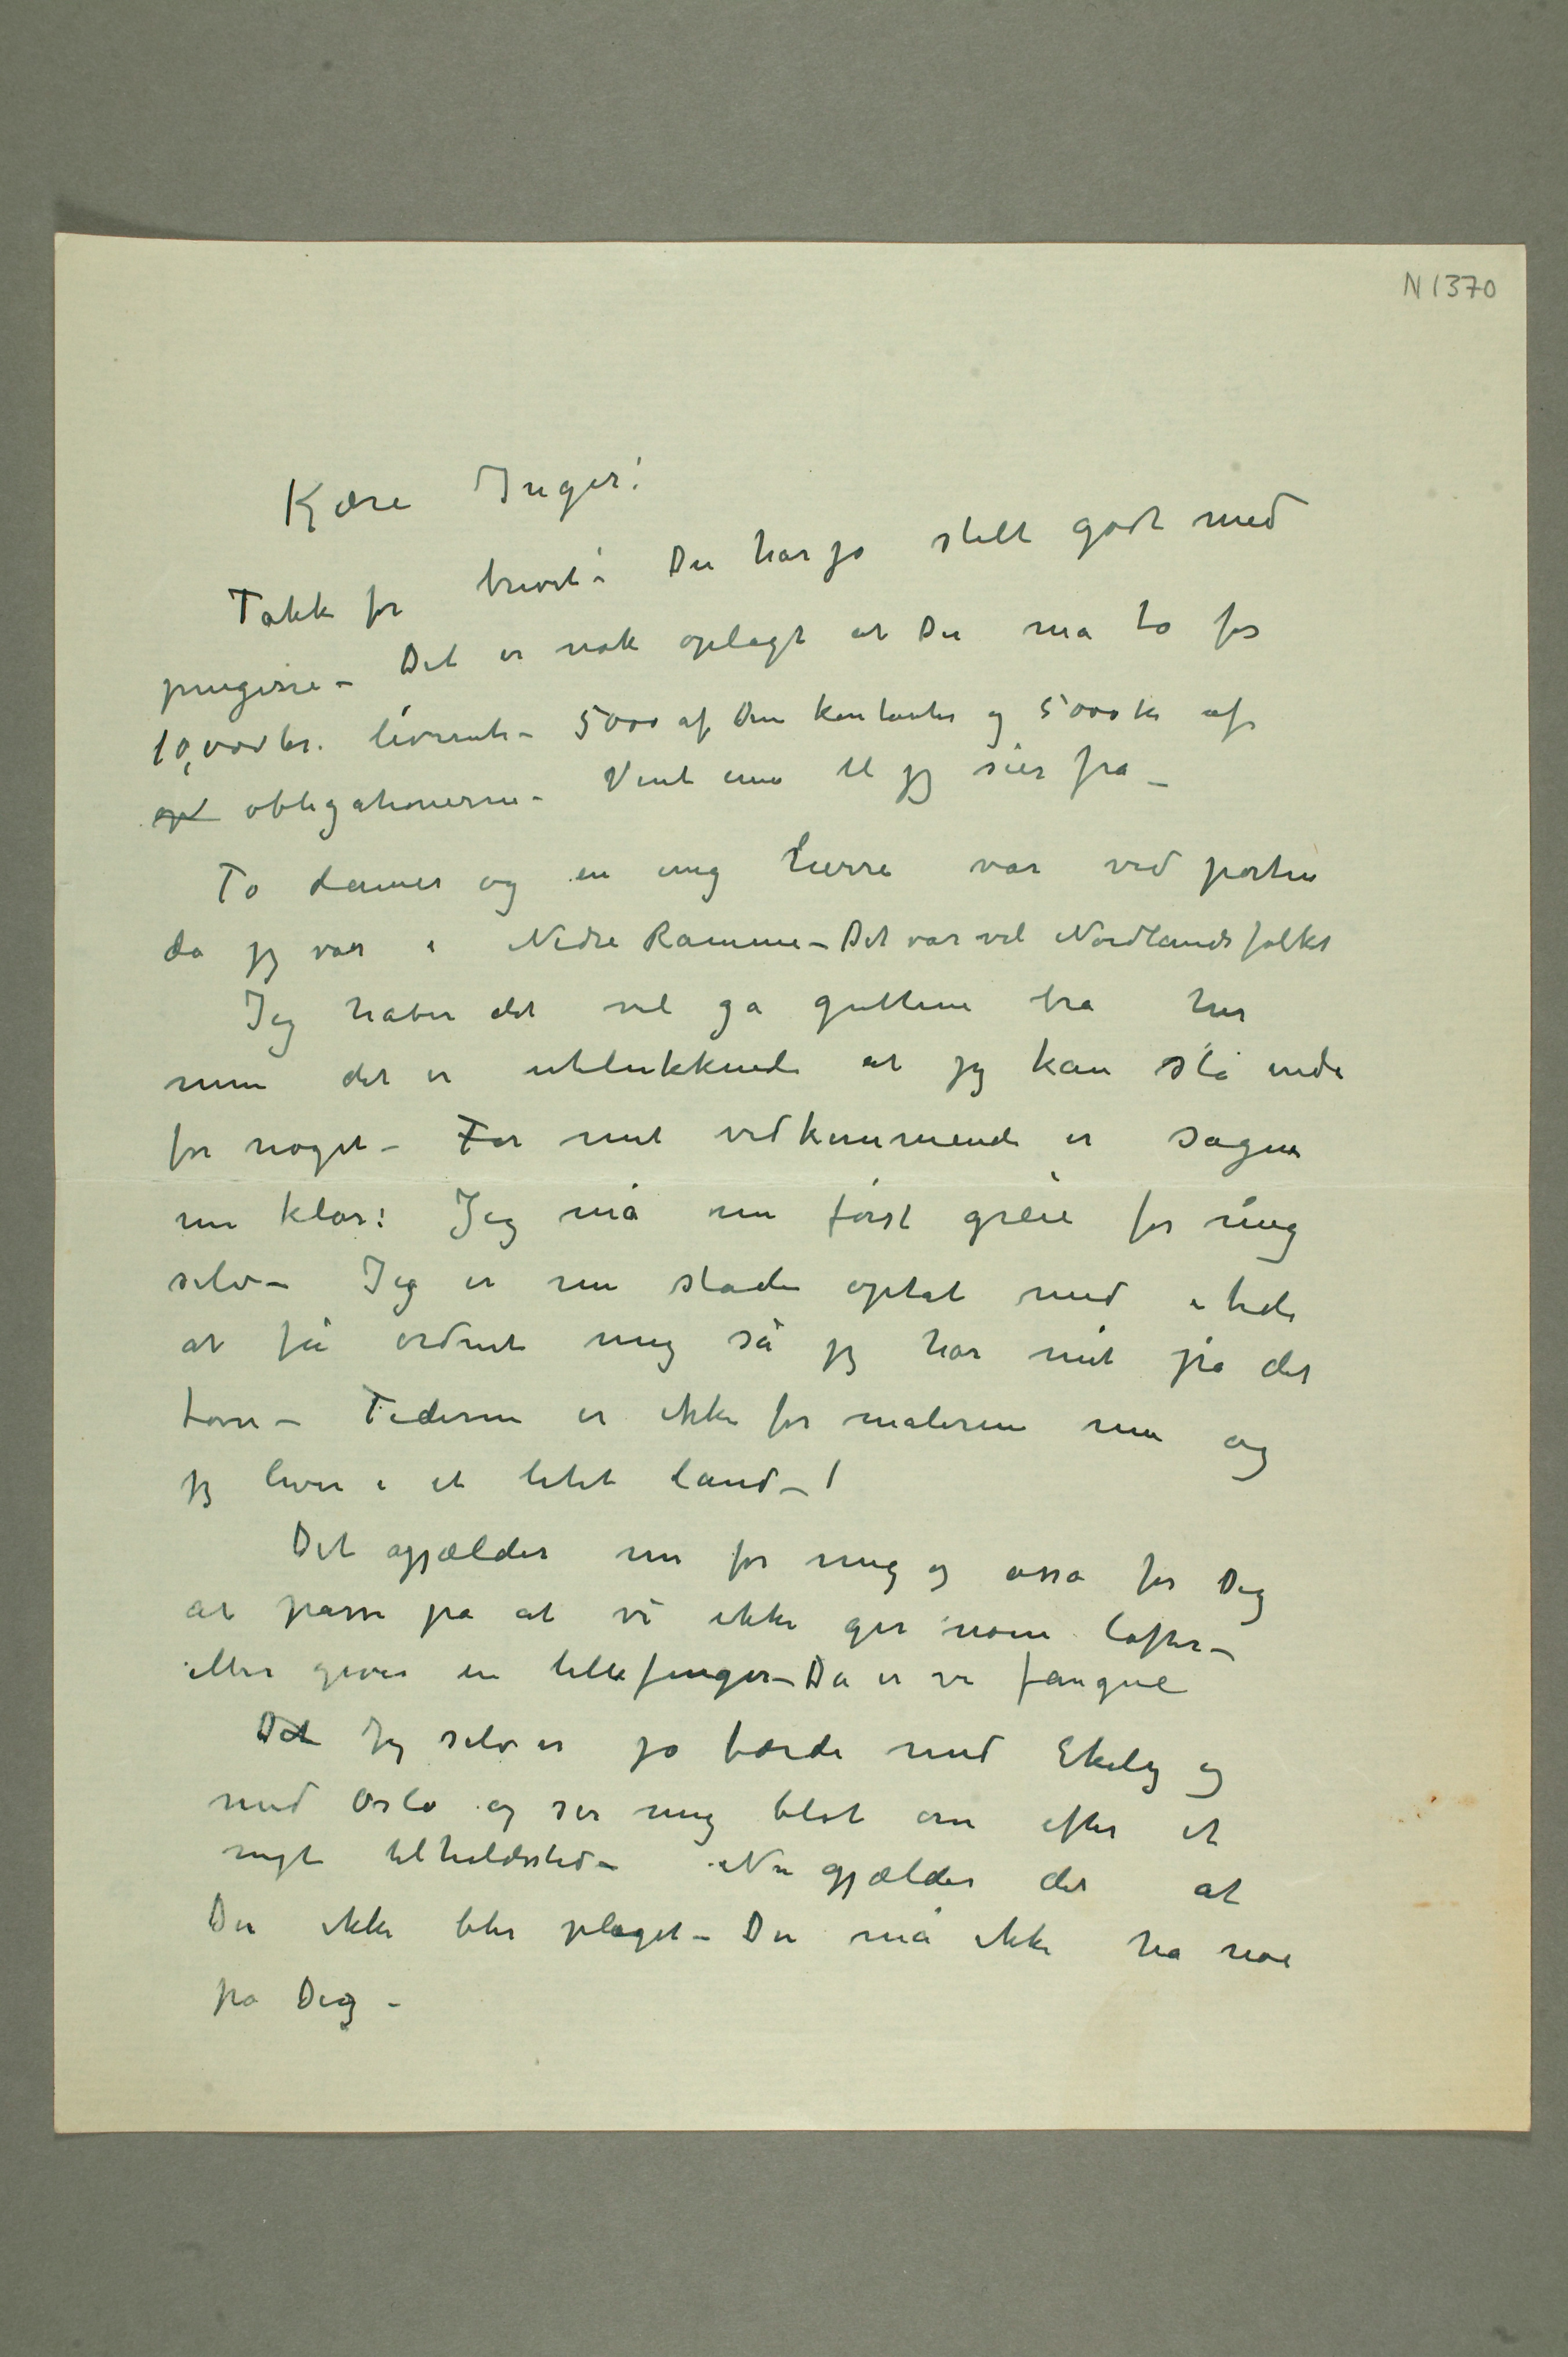 N 1370
Kjære Inger!
Takk for brevet! Du har jo stelt godt med
pengene – Det er nok oplagt at Du må ta for
10,000 kr. livrente – 5000 af Dem kontanter og 5000 kr af
op obligationerne – Vent ennu til jeg sier fra –
To damer og en ung herre var ved porten
da jeg var i Nedre Ramme – Det var vel Nordlandsfolket
Jeg håber det vil gå guttene bra her
men det er utelukkende at jeg kan stå inde
for noget – For mit vedkommende er sagen
nu klar: Jeg må nu først greie for mig
selv – Jeg er nu stadi optat med i tide
at få ordnet mig så jeg har mit på det
tørre – Tiderne er ikke for malerne nu og
jeg lever i et litet land – !
Det gjælder nu for mig og osså for Dig
at passe på at vi ikke gir noen løfter –
eller giver en lillefinger – Da er vi fangne
Det Jeg selv er jo færdi med Ekely og
med Oslo og ser mig blot om efter et
nyt tilholdssted – Nu gjælder det at
Du ikke blir plaget – Du må ikke ha noe
på Dig –